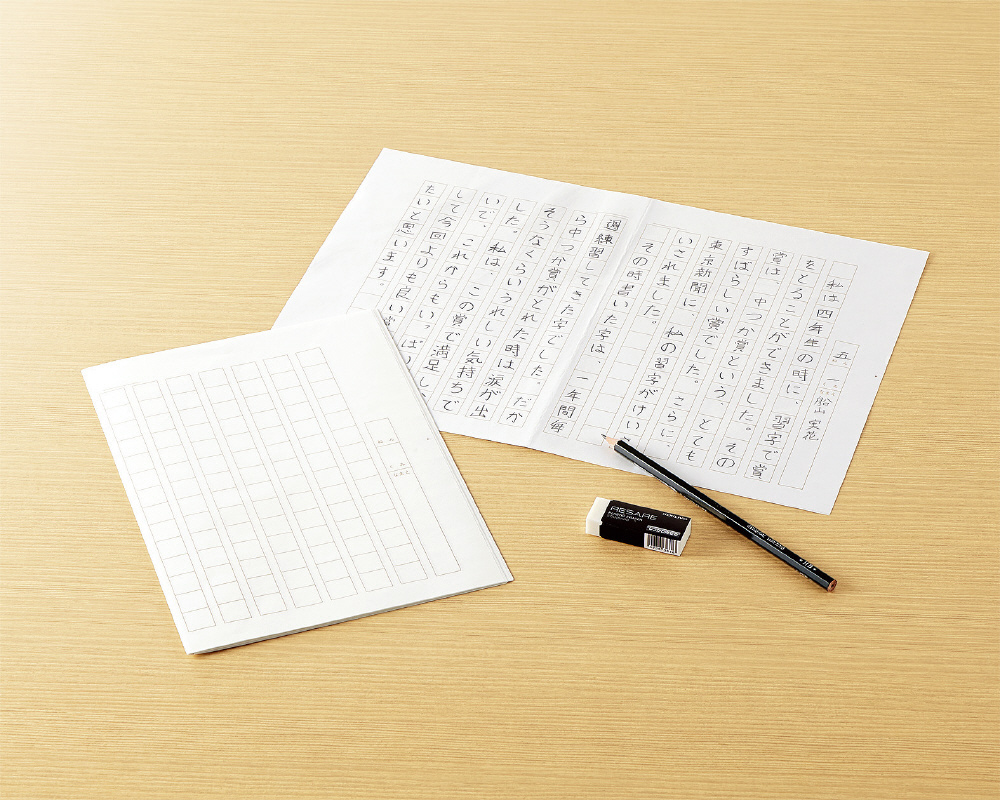 五.一 船山 実花
私は四年生の時に、習字で賞
をとることができました。その
賞は、中つか賞という、とても
すばらしい賞でした。さらに、
東京新聞に、私の習字がけい
さいされました。
その時書いた字は、一年間毎
週練習してきた字でした。だか
ら中つか賞がとれた時は涙が出
そうなくらいうれしい気持ちで
した。私は、この賞で満足し
いで、これからもい。ぱ
して今回よりも良い賞
たいと思います。
RESARE